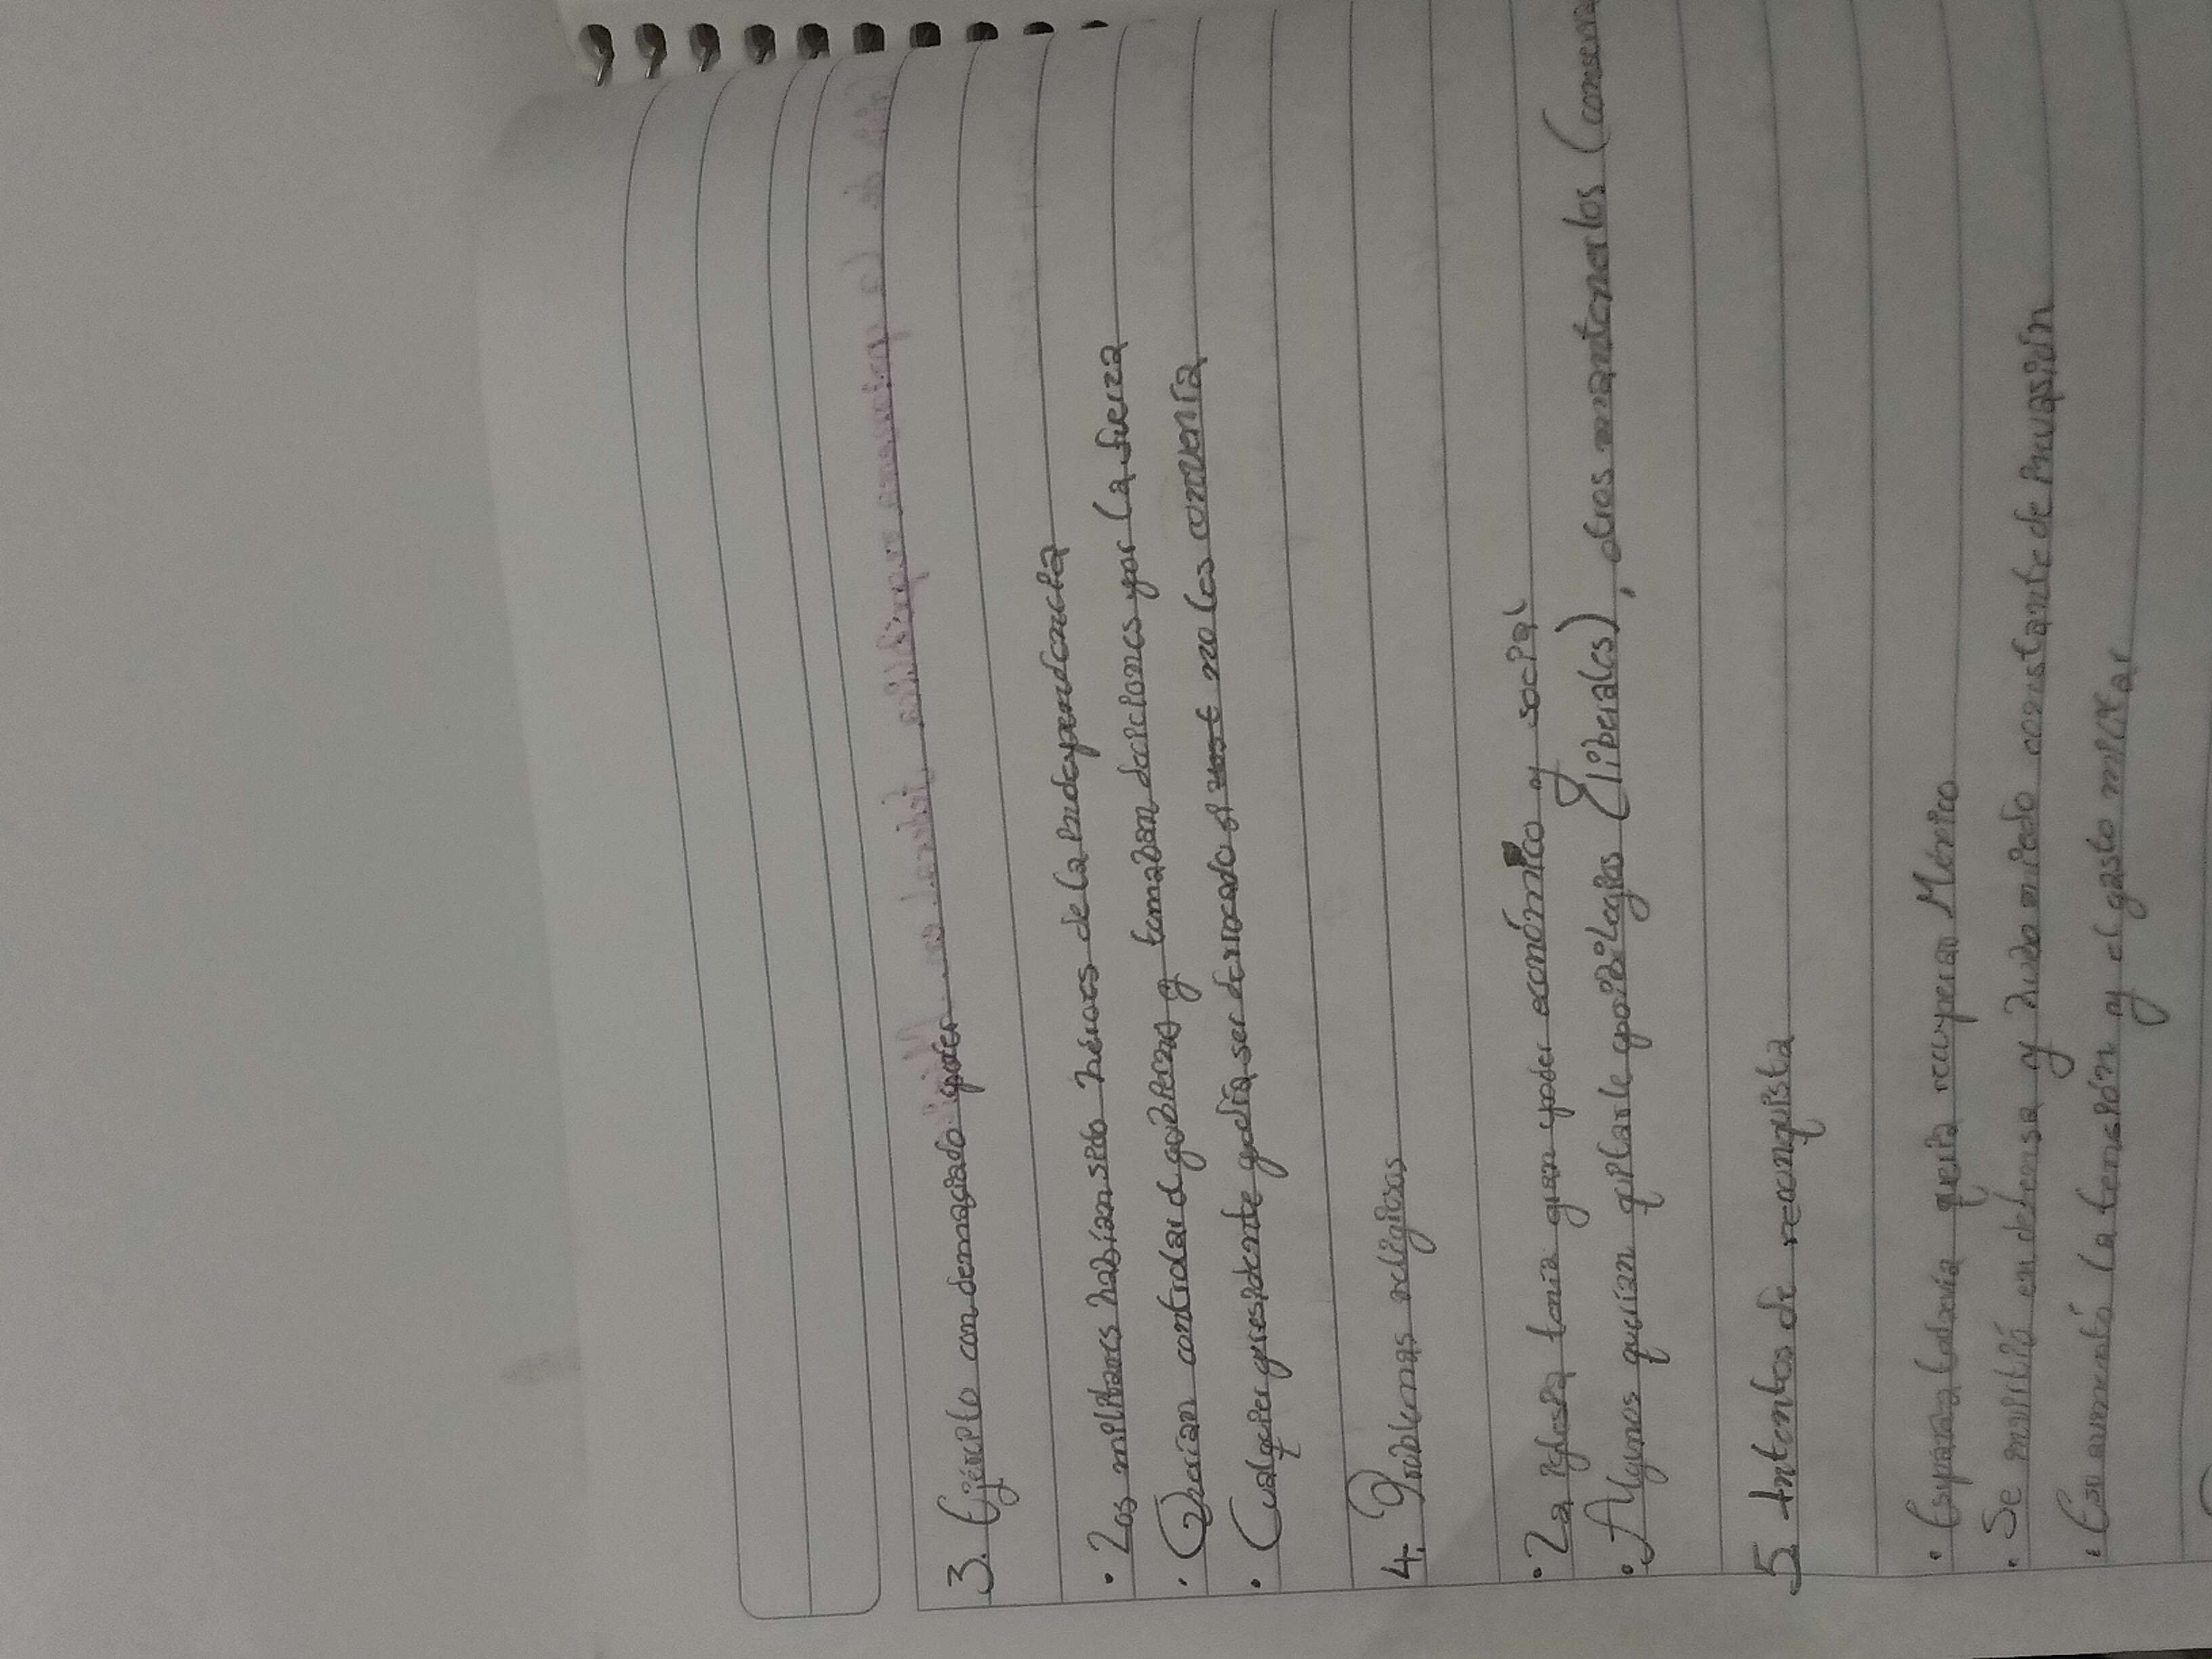 3. Ejército con demaciado poder
· Los militares habían sido héroes de la independencia
· Querían controlar el gobierno y tomaban deciciones por la fuerza
· Cualquier presidente podía ser derrocado si no les convenía
4. Problemas religiosos
· La iglesia tenía gran poder económico y social
· Algunos querían quitarle privilegios (liberales), otros mantenerlos (conserva
5. Intentos de reconquista
· España todavía quería recuperar México
· Se invirtió en defensa y hubo miedo constante de invasión
· Eso aumentó la tensión y el gasto militar